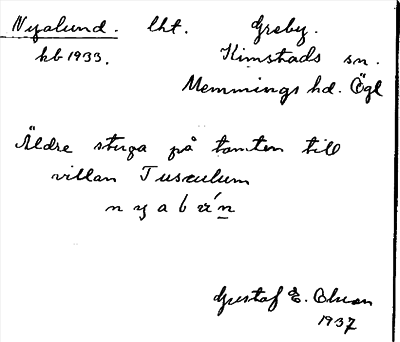 Nyalund. lht. Greby.
kb 1933. Kimstads sn.
Memmings hd. Ögl
Äldre stuga på tomten till
villan Tusculum
Gustaf E. Olson
1937